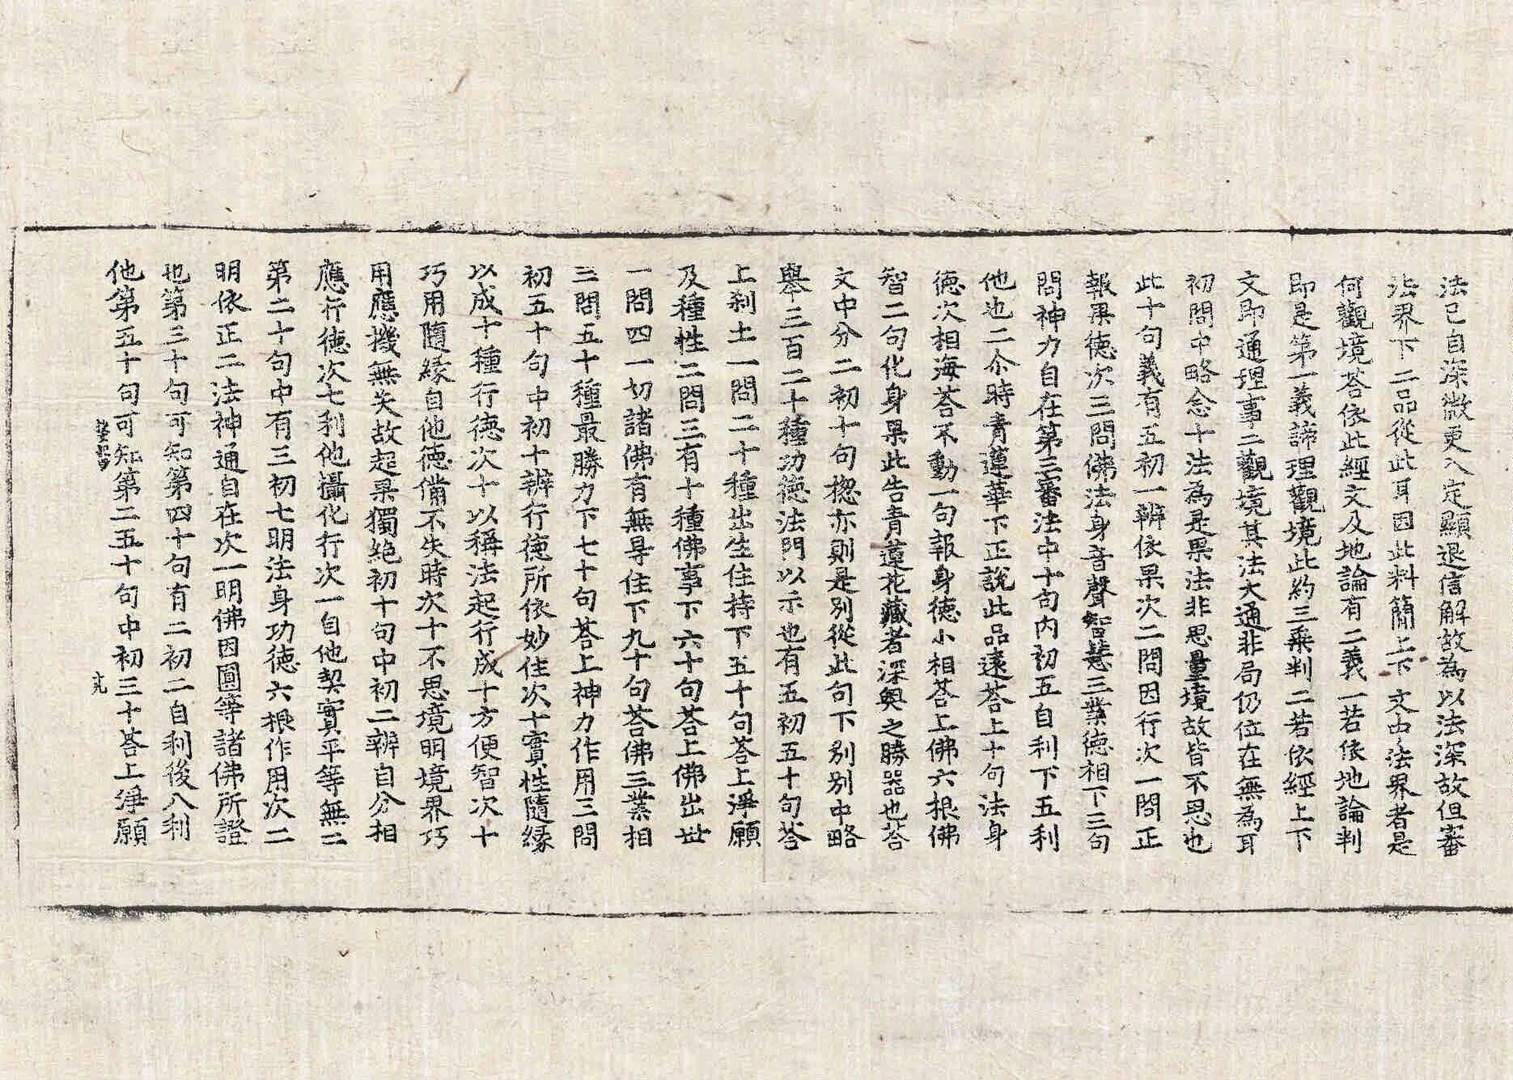 法已自深微更入定顯退信解故為以法深故但審
法界下二品從此耳因此料簡上下文由法界者是
何觀境荅依此經文及地論有二義一若依地論判
即是第一義諦理觀境此約三乗判二若依經上下
文即通理事二觀境其法大通非局仍位在無為耳
初問中略念十法為是果法非思量境故皆不思也
此十句義有五初一辨依果次二問因行次一問正
報果徳次三問佛法身音聲智慧三業徳相下三句
問神力自在第三審法中十句内初五自利下五利
他也二尒時青蓮華下正說此品遠荅上十句法身
徳次相海荅不動一句報身徳小相荅上佛六根佛
智二句化身果此告青蓮花藏者深奥之勝器也荅
文中分二初十句揔亦則是別從此句下別別中略
舉三百二十種功徳法門以示也有五初五十句荅
上刹土一問二十種出生住持下五十句荅上淨願
及種性二問三有十種佛事下六十句荅上佛出世
一問四一切諸佛有無㝵住下九十句荅佛三業相
三問五十種最勝力下七十句荅上神力作用三問
初五十句中初十辨行徳所依妙住次十實性隨縁
以成十種行徳次十以稱法起行成十方便智次十
巧用隨縁自他徳俻不失時次十不思境明境界巧
用應機無失故起果獨絶初十句中初二辨自分相
應行徳次七利他攝化行次一自他契實平等無二
第二十句中有三初七明法身功徳六根作用次二
明依正二法神通自在次一明佛因圓等諸佛所證
也第三十句可知第四十句有二初二自利後八利
他第五十句可知第二五十句中初三十荅上淨願